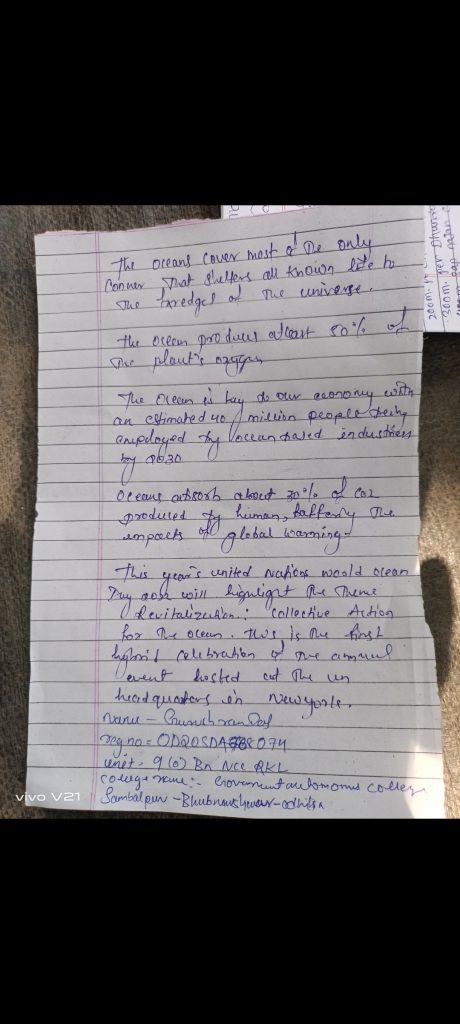 The oceans cover most of the only
Conner That shelters all known life to
The of The universe.
The ocean produces atleast 50% of
The plant's oxygen
The ocean is key to our economy with
an estimated 40 million people being
employed by ocean based industries
by 2030
Oceans absorb about 30% of CO2
produced by human, The
impacts of global warming.
This year's united Nations would ocean
Day will highlight The Theme
Revitalization: Collective Action
for The ocean. This is The first
hybrid celebration of The annual
event hosted at The un
headquaters in Newyork.
Name -
reg no = 074
unit - 9 (O) Bn NCC RKL
college name :- Government autonomous college
Sambalpur -
vivo V21
200m.
300m. per